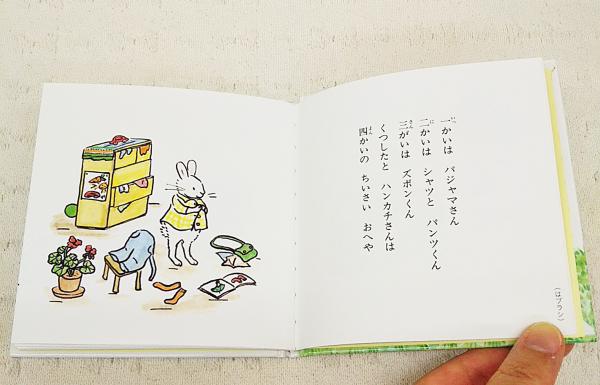 一かいは　パジャマさん
二かいは　シャツと　パンツくん
三がいは　ズボンくん
くつしたと　ハンカチさんは
四かいの　ちいさい　おへや
（はブラシ）